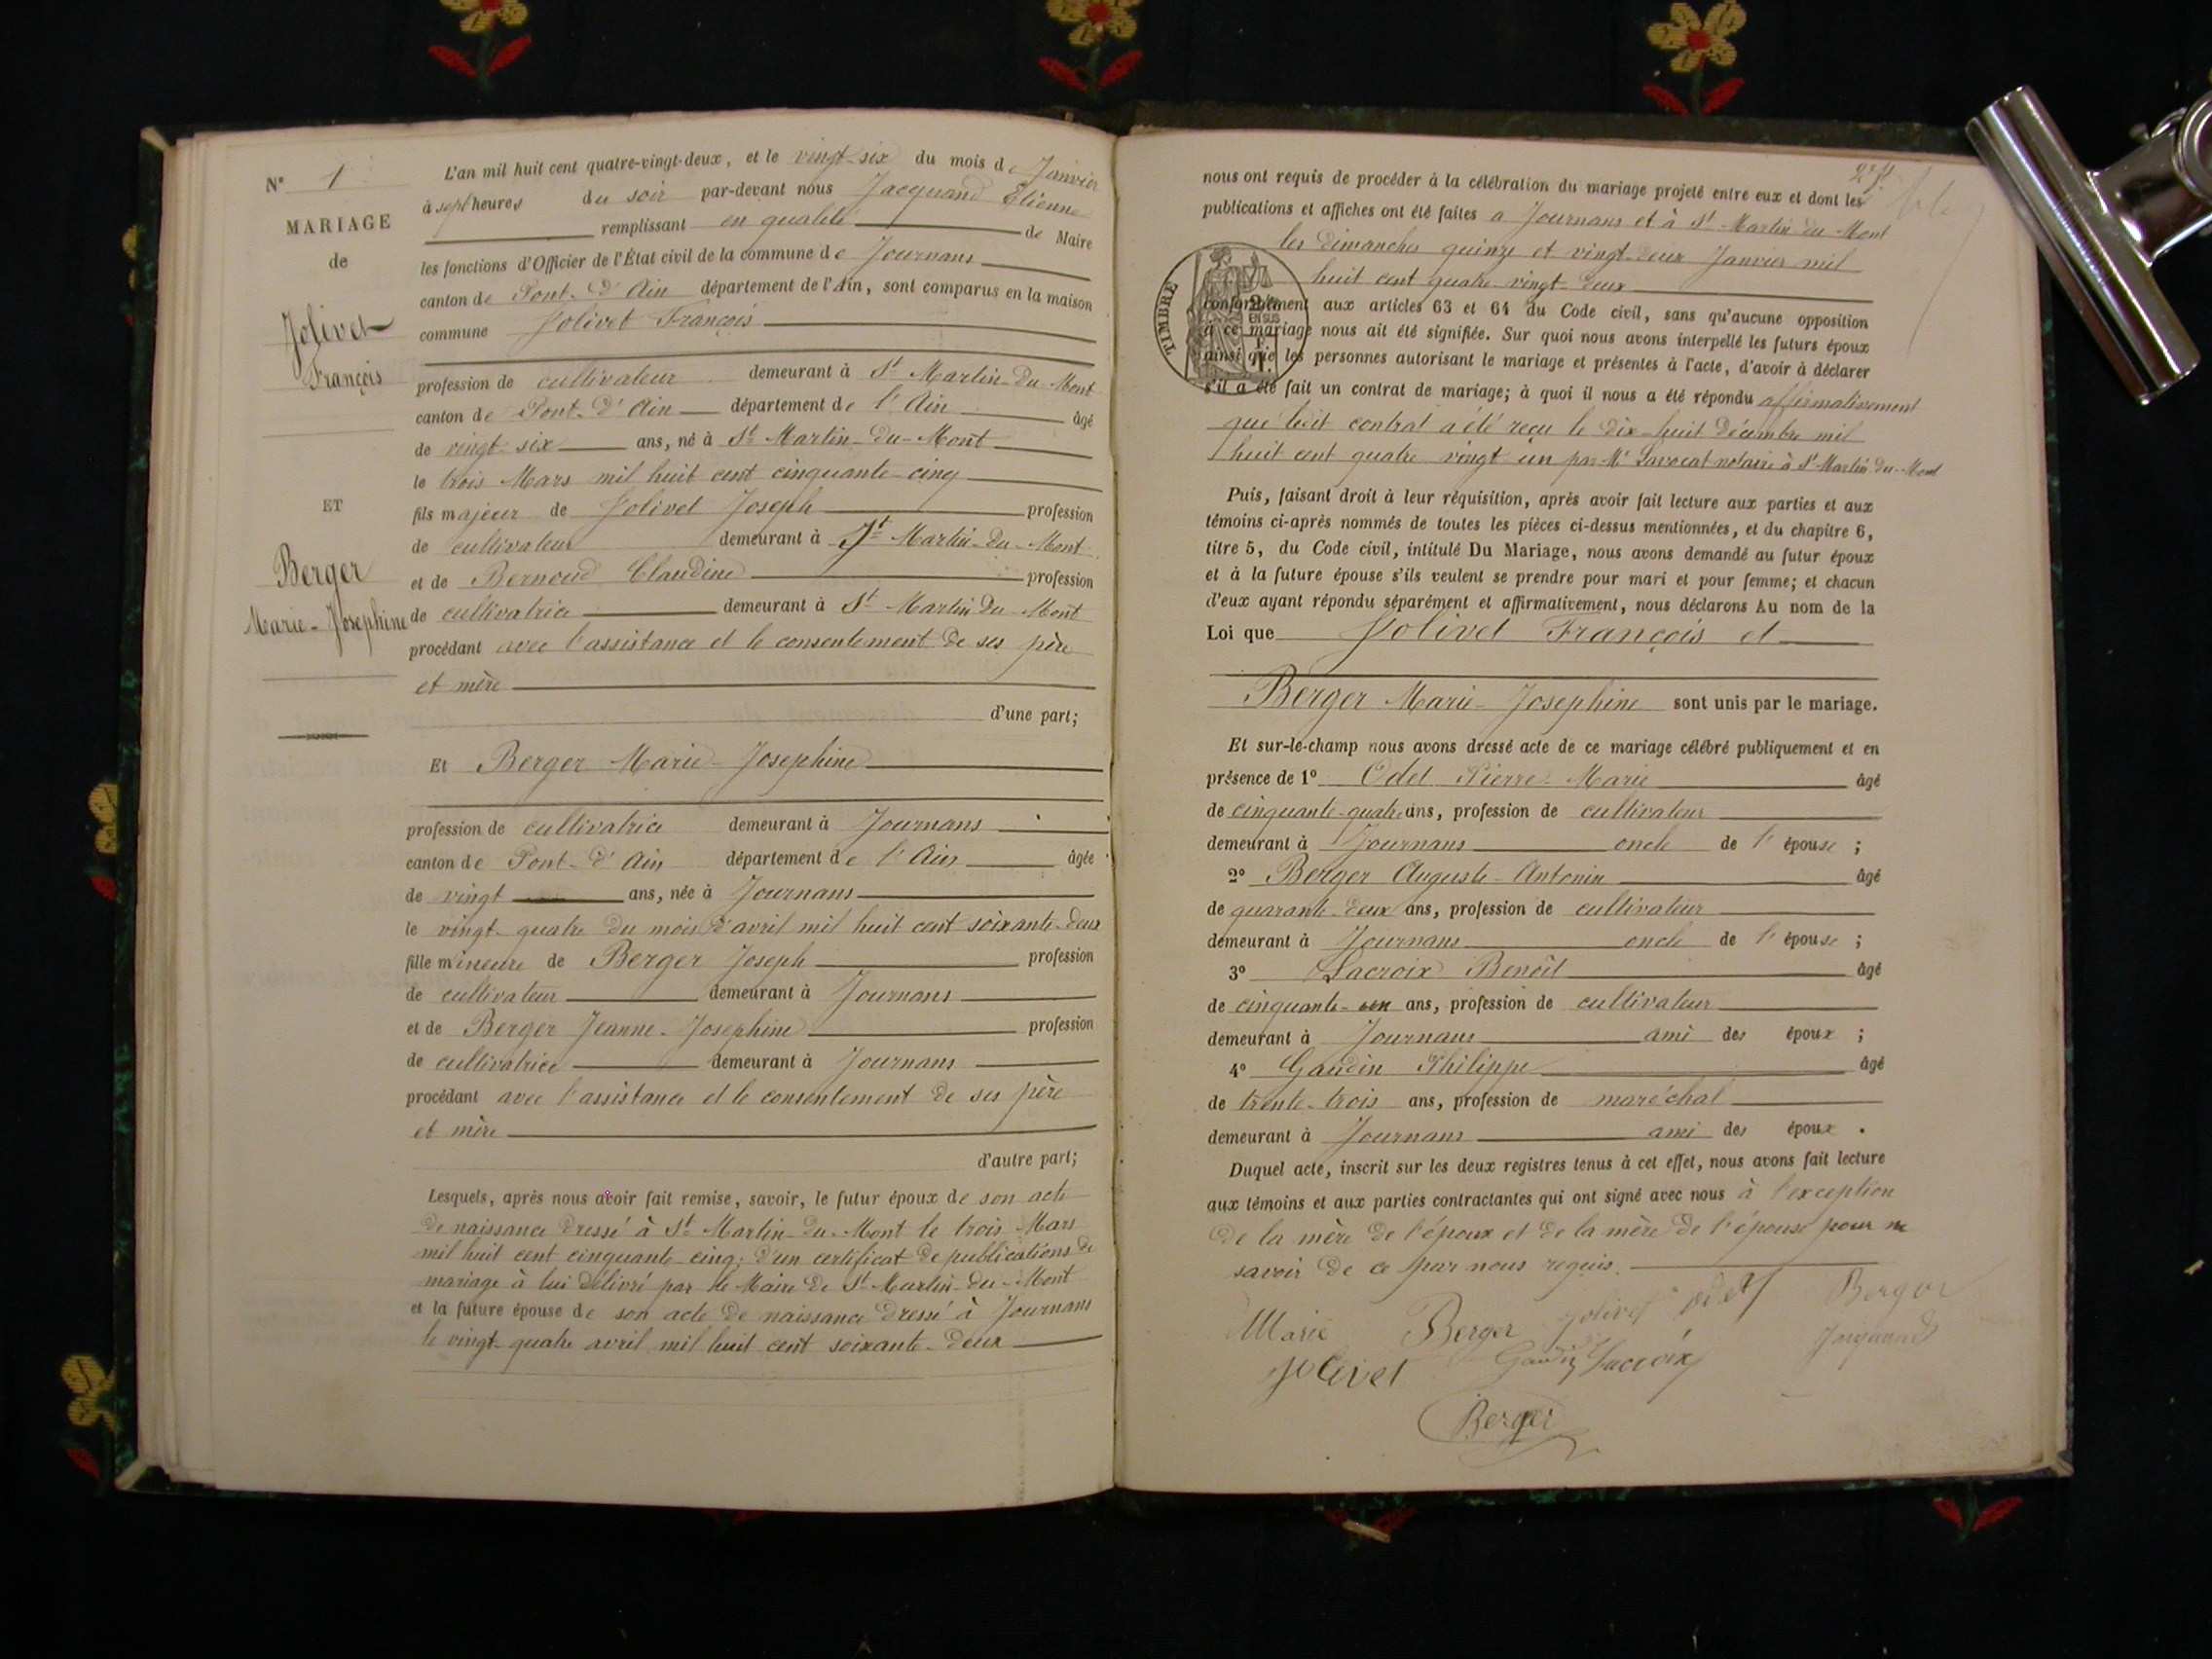 N° 1
MARIAGE
de
Jolivet
François
ET
Berger
Marie-Josephine
L'an mil huit cent quatre-vingt-deux, et le vingt-six du mois de Janvier
à sept heures du soir par-devant nous Jacquand Etienne
remplissant en qualité de Maire
les fonctions d'Officier de l'État civil de la commune de Journans
canton de Pont-d'Ain département de l'Ain, sont comparus en la maison
commune Jolivet François
profession de cultivateur demeurant à St Martin-du-Mont
canton de Pont-d'Ain département de l'Ain âgé
de vingt-six ans, né à St Martin-du-Mont
le trois Mars mil huit cent cinquante-cinq
fils majeur de Jolivet Joseph profession
de cultivateur demeurant à St Martin-du-Mont
et de Bernoud Claudine profession
de cultivatrice demeurant à St Martin-du-Mont
procédant avec l'assistance et le consentement de ses père
et mère
d'une part;
Et Berger Marie-Josephine
profession de cultivatrice demeurant à Journans
canton de Pont-d'Ain département de l'Ain âgée
de vingt ans, née à Journans
le vingt-quatre du mois d'avril mil huit cent soixante-deux
fille mineure de Berger Joseph profession
de cultivateur demeurant à Journans
et de Berger Jeanne-Josephine profession
de cultivatrice demeurant à Journans
procédant avec l'assistance et le consentement de ses père
et mère
d'autre part;
Lesquels, après nous avoir fait remise, savoir, le futur époux de son acte
de naissance dressé à St Martin-du-Mont le trois Mars
mil huit cent cinquante-cinq; d'un certificat de publications de
mariage à lui délivré par le Maire de St Martin-du-Mont
et la future épouse de son acte de naissance dressé à Journans
le vingt-quatre avril mil huit cent soixante-deux
nous ont requis de procéder à la célébration du mariage projeté entre eux et dont les
publications et affiches ont été faites à Journans et à St Martin-du-Mont
les dimanches quinze et vingt-deux Janvier mil
huit cent quatre-vingt-deux
TIMBRE
conformément aux articles 63 et 64 du Code civil, sans qu'aucune opposition
à ce mariage nous ait été signifiée. Sur quoi nous avons interpellé les futurs époux
ainsi que les personnes autorisant le mariage et présentes à l'acte, d'avoir à déclarer
s'il a été fait un contrat de mariage; à quoi il nous a été répondu affirmativement
que ledit contrat a été reçu le dix-huit décembre mil
huit cent quatre-vingt-un par Me Savocat notaire à St Martin-du-Mont
Puis, faisant droit à leur réquisition, après avoir fait lecture aux parties et aux
témoins ci-après nommés de toutes les pièces ci-dessus mentionnées, et du chapitre 6,
titre 5, du Code civil, intitulé Du Mariage, nous avons demandé au futur époux
et à la future épouse s'ils veulent se prendre pour mari et pour femme; et chacun
d'eux ayant répondu séparément et affirmativement, nous déclarons Au nom de la
Loi que Jolivet François et
Berger Marie-Josephine sont unis par le mariage.
Et sur-le-champ nous avons dressé acte de ce mariage célébré publiquement et en
présence de 1° Odet Pierre-Marie âgé
de cinquante-quatre ans, profession de cultivateur
demeurant à Journans oncle de l'épouse ;
2° Berger Auguste-Antonin âgé
de quarante-deux ans, profession de cultivateur
demeurant à Journans oncle de l'épouse ;
3° Lacroix Benoît âgé
de cinquante-un ans, profession de cultivateur
demeurant à Journans ami des époux ;
4° Gaudin Philippe âgé
de trente-trois ans, profession de maréchal
demeurant à Journans ami des époux .
Duquel acte, inscrit sur les deux registres tenus à cet effet, nous avons fait lecture
aux témoins et aux parties contractantes qui ont signé avec nous à l'exception
de la mère de l'époux et de la mère de l'épouse pour ne
savoir de ce par nous requis.
Marie Berger Jolivet Odet Berger
Jolivet Gaudin Lacroix Jacquand
Berger